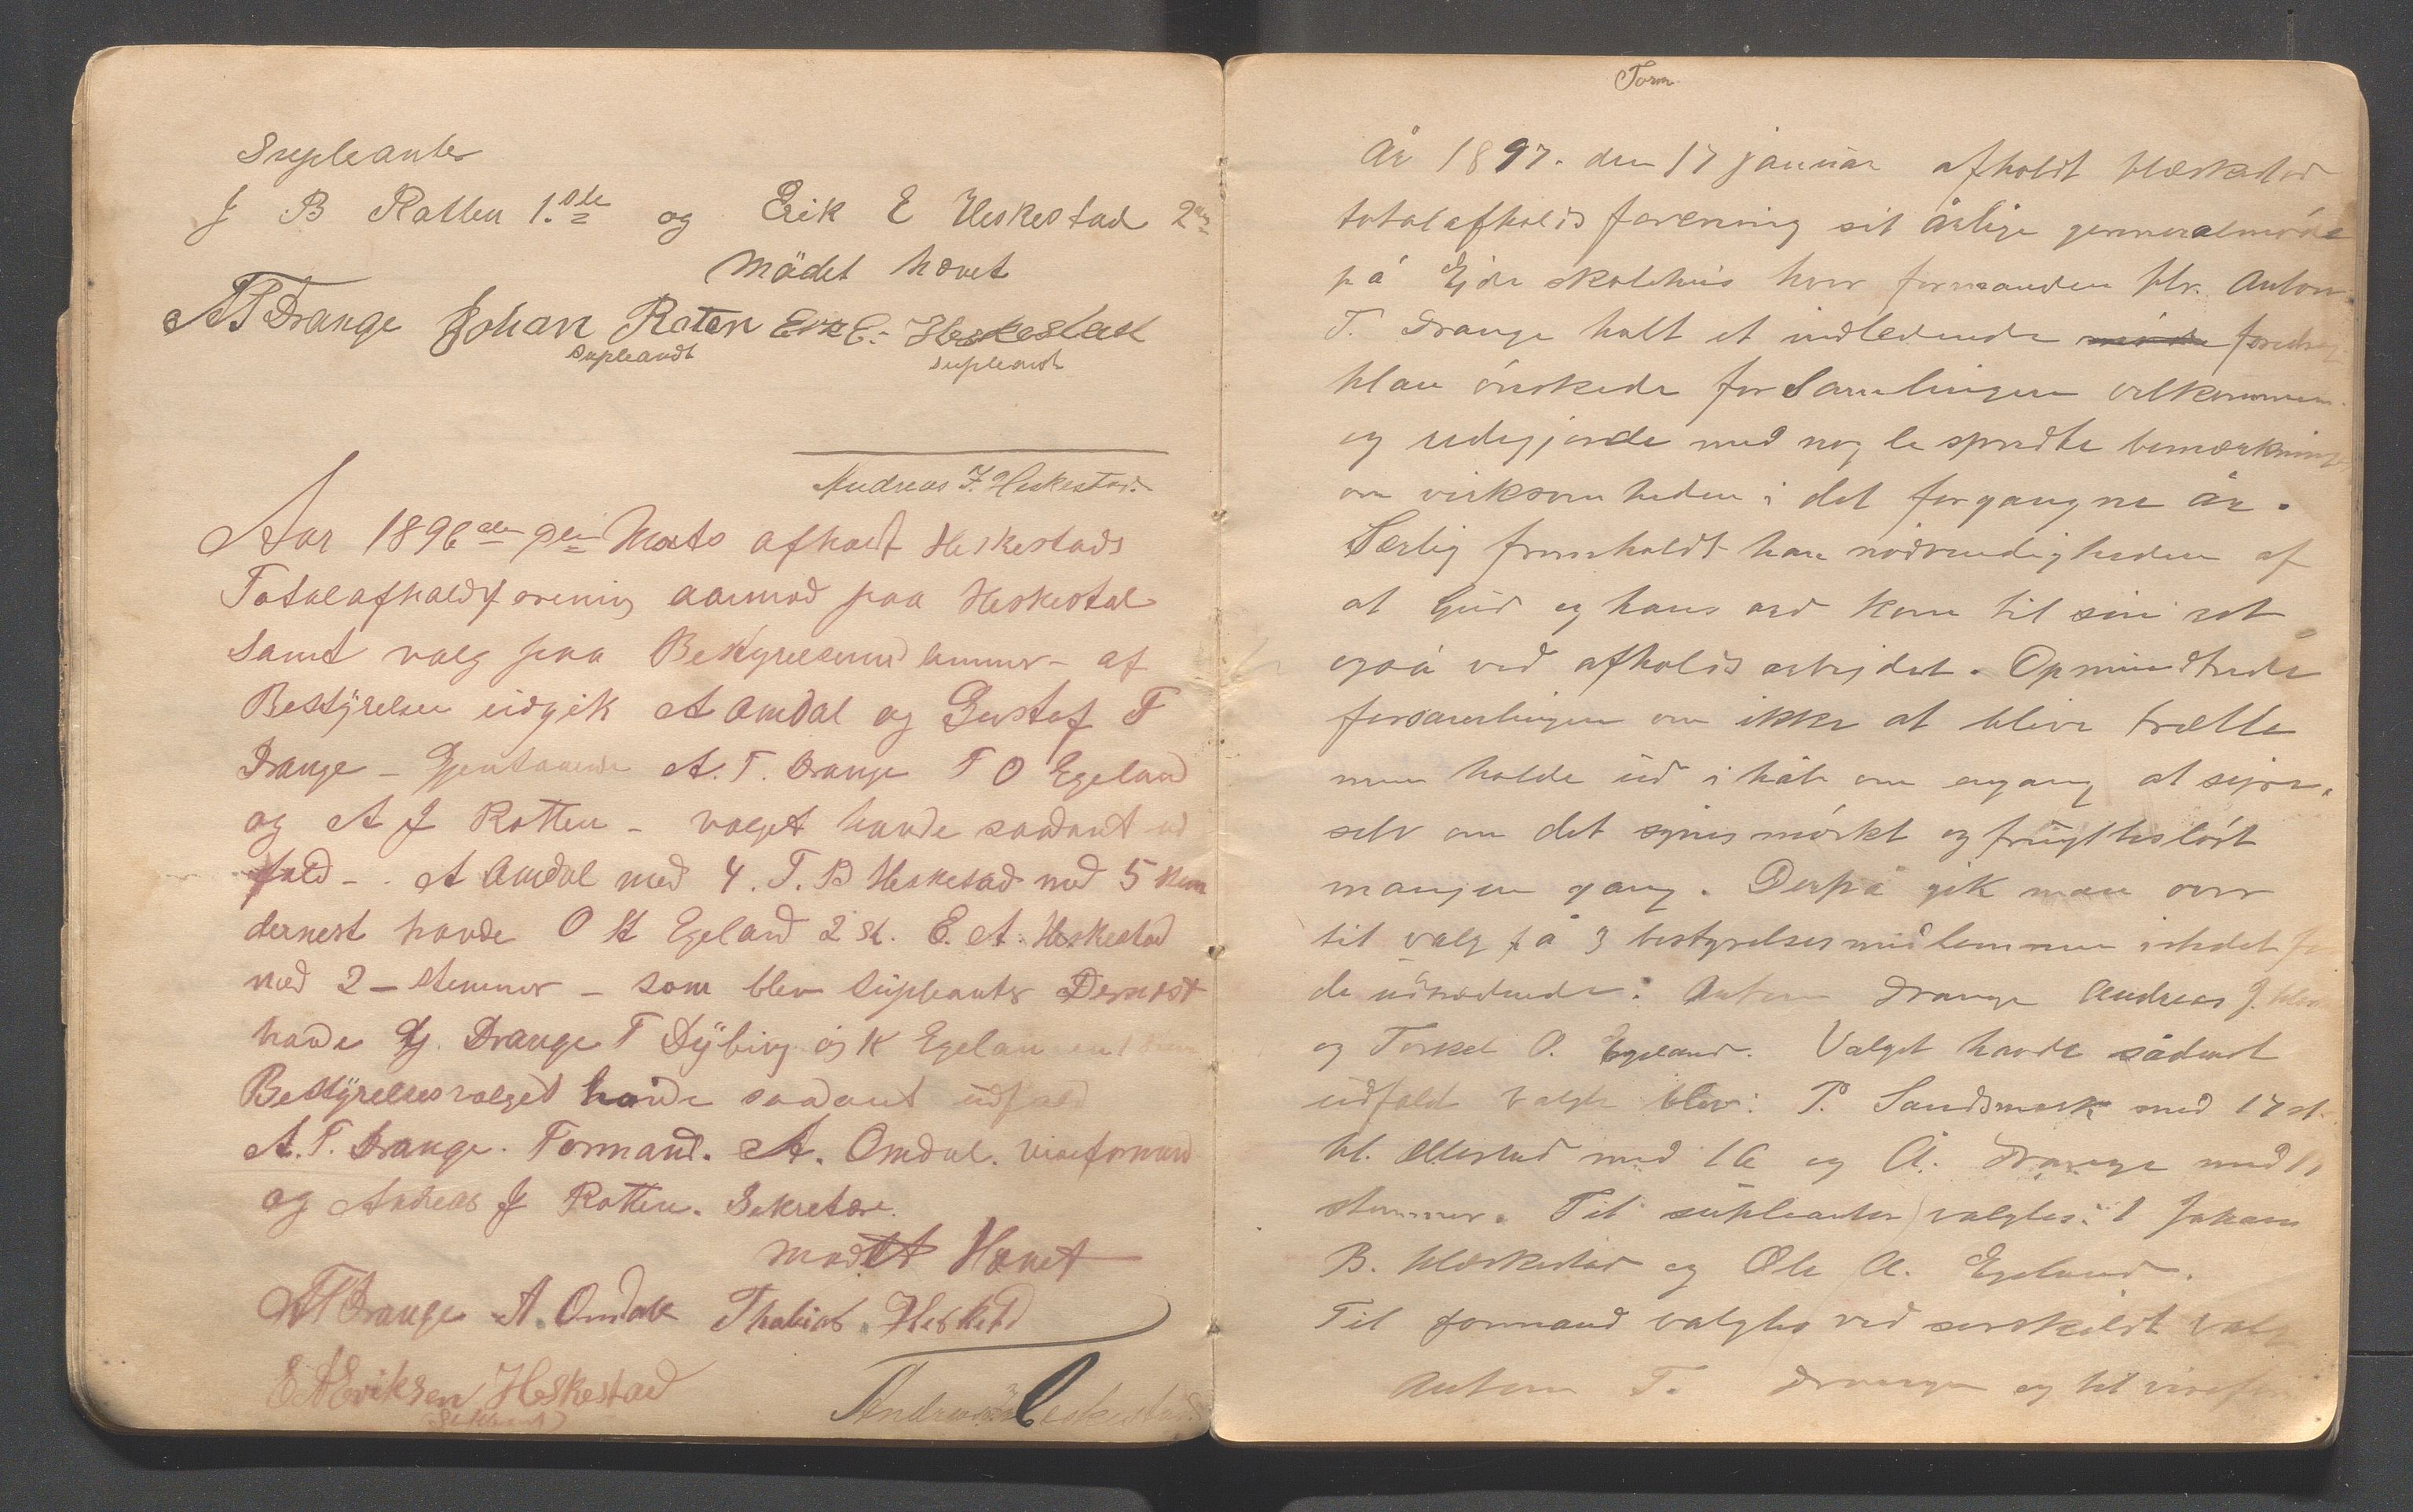 Supleanter
J B Ratten 1.ste og Erik E Heskestad 2den
Mödet hævet
AT Drange Johan Raten Erik E. Heskestad
Supleandt Supleandt
Andreas J. Heskestad.
Aar 1896 den 9de Marts afholdt Heskestads
Totalafholdsforening aarmød paa Heskestad
samt valg paa Bestyrelsesmedlemmer - af
Bestyrelsen udgik A Omdal og Gustaf T
Drange - Gjenstaaende A. T. Drange T O Egeland
og A J Rotten - valget havde saadant ud
fald - . A Omdal med 4. T. B Heskestad med 5 stem
dernest havde O A Egeland 2 st. E. A. Heskestad
med 2 - stemmer - som blev Supleanter Dernest
havde G. Drange T Dybing og K Egelan
Bestyrelsesvalget havde saadant udfald
A. T. Drange. Formand. A. Omdal. viseformand
og Andreas J Rotten. Sekretære.
mødet Hævet
AT Drange A. Omdal Thobias Heskestd
E A Eriksen Heskestad
(Supleant)
Andreas J. Heskestad.
Form
År 1897. den 17 januar afholdt Hæskestad
totalafholds forening sit årlige genneralmóde
på Ejde skolehus hvor formanden Hr. Anton
T. Drange holt et indledende móde foredrag
Han ónskede forSamlingen velkommen
og redegjorde med nogle spredte bemærkninger
om virksomheden i det forgangne år.
Særlig fremholdt han nódvendigheden af
at Gud og hans ord kom til sin ret
også ved afholdsarbejdet. Opmundtrede
forsamlingen om ikke at blive trætte
men holde ud i håb om engang at sejre,
selv om det synes mórkt og frugtteslóst
mangen gang. Derpå gik man over
til valg på 3 bestyrelsesmedlemmer istedet for
de udtrædende: Anton Drange Andreas J. Hesk
og Torkel O. Egeland. Valget havde sådant
udfald Valgte blev: P. Sandsmark med 17 st.
H. Ollestad med 16 og A. Drange med 11
stemmer. Til supleanter valgtes: 1 Johan
B. Hæskestad og Ole A. Egeland.
Til formand valgtes ved særskildt valg
Anton T. Drange og til vicefor